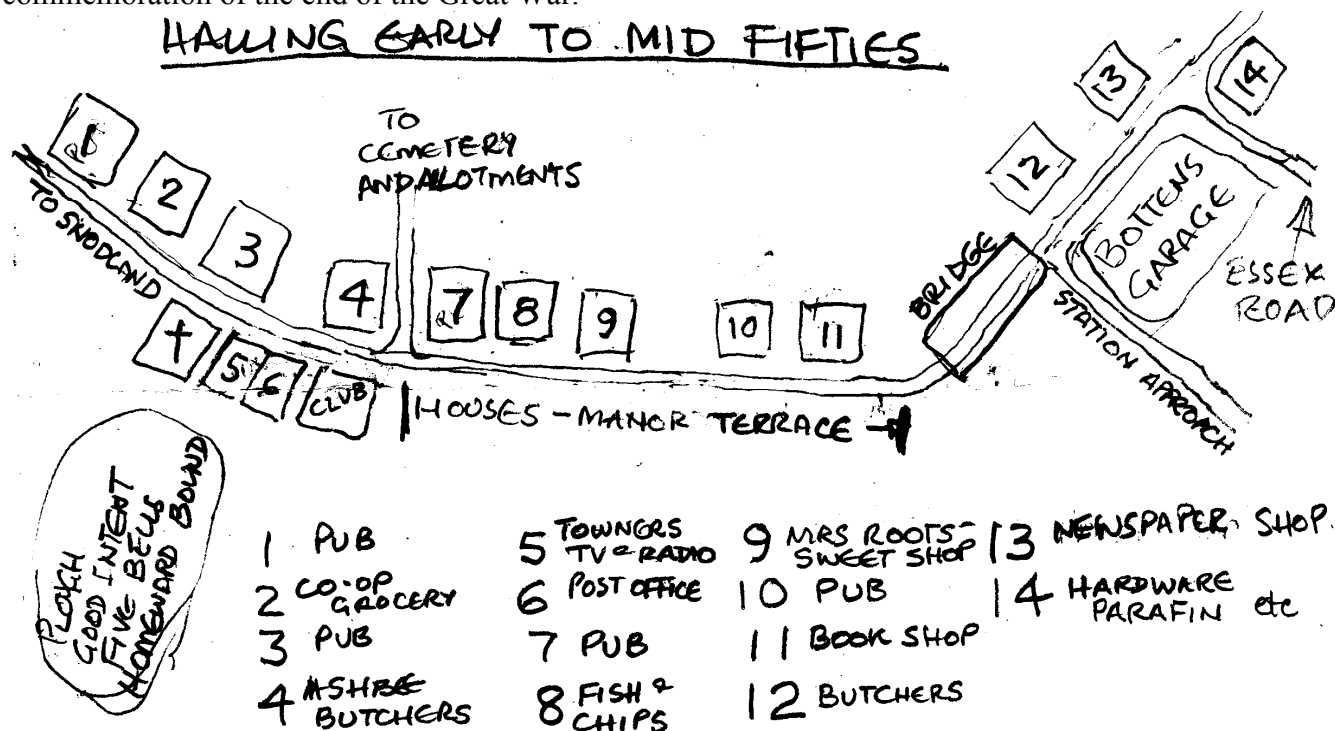 commemoration of the end of the Great War.
HALLING EARLY TO MID FIFTIES
TO
CEMETERY
AND ALLOTMENTS
1
2
3
4
TO SNODLAND
5
6
CLUB
7
8
9
10
11
HOUSES - MANOR TERRACE
BRIDGE
12
13
14
BOTTENS
GARAGE
ESSEX
ROAD
STATION APPROACH
PLOUGH
GOOD INTENT
FIVE BELLS
HOMEWARD BOUND
1 PUB
2 CO-OP
GROCERY
3 PUB
4 ASHBEE
BUTCHERS
5 TOWNERS
TV & RADIO
6 POST OFFICE
7 PUB
8 FISH &
CHIPS
9 MRS ROOTS
SWEET SHOP
10 PUB
11 BOOK SHOP
12 BUTCHERS
13 NEWSPAPER SHOP
14 HARDWARE
PARAFIN etc